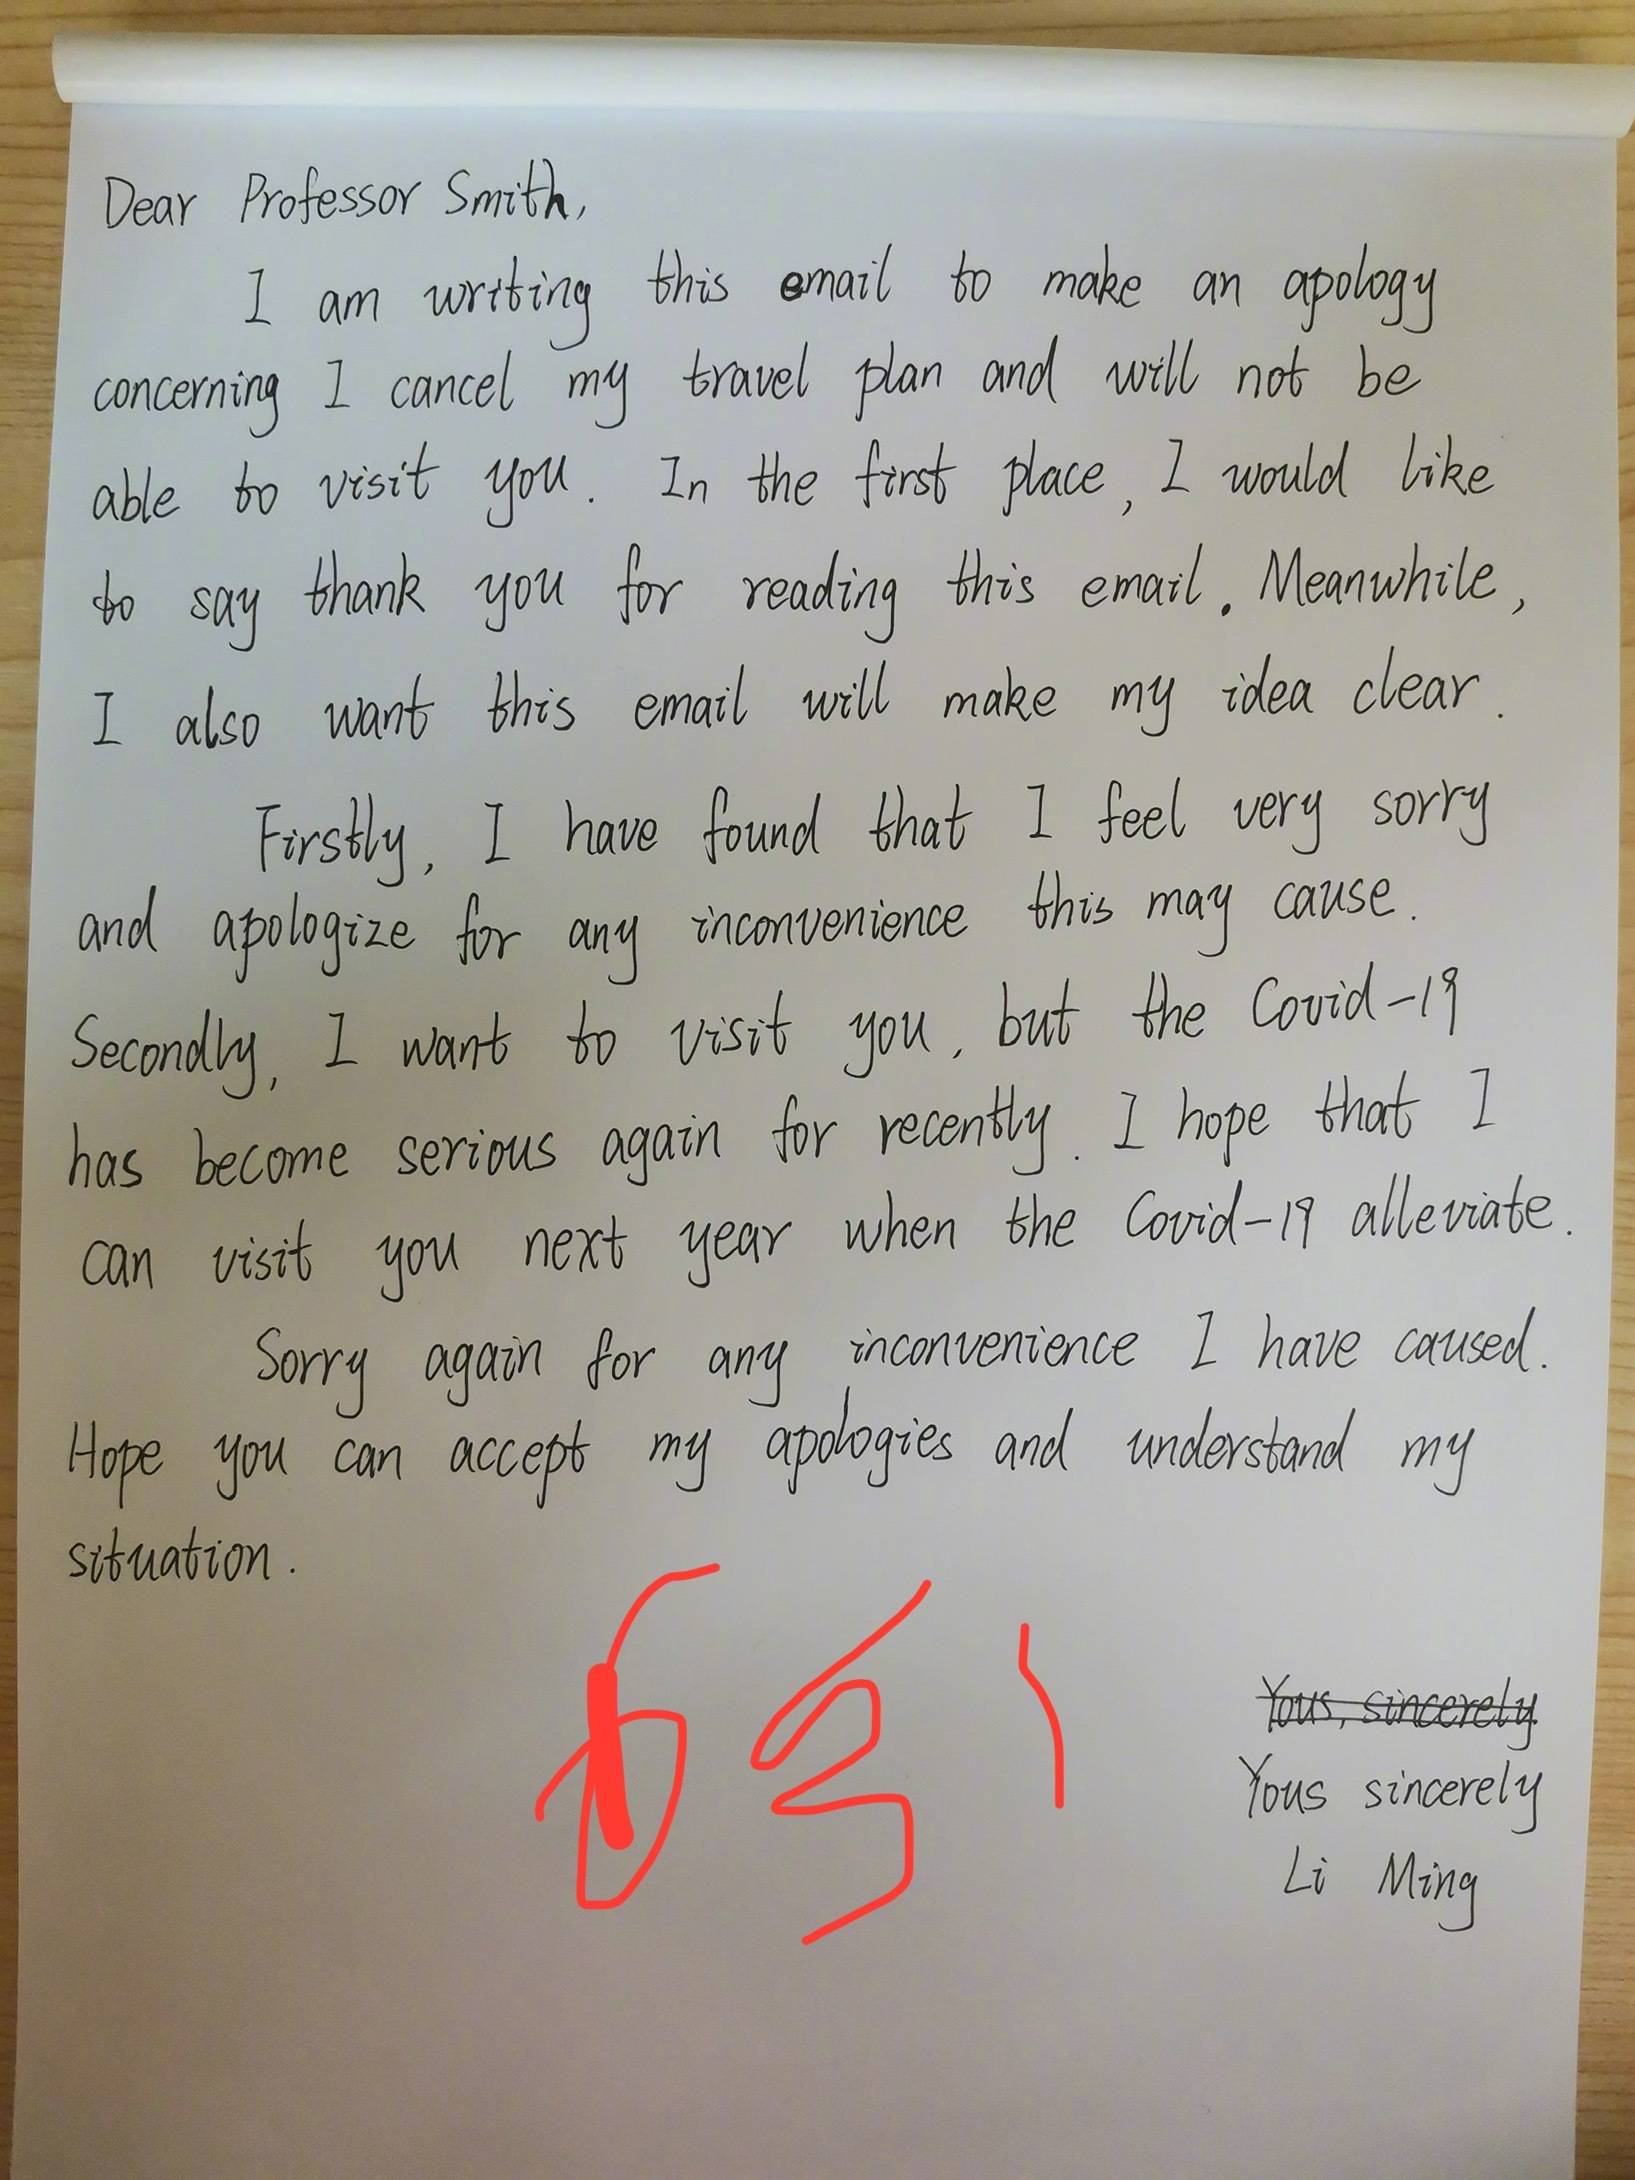 Dear Professor Smith,
I am writing this email to make an apology
concerning I cancel my travel plan and will not be
able to visit you. In the first place, I would like
to say thank you for reading this email. Meanwhile,
I also want this email will make my idea clear.
Firstly, I have found that I feel very sorry
and apologize for any inconvenience this may cause.
Secondly, I want to visit you, but the Covid-19
has become serious again for recently. I hope that I
can visit you next year when the Covid-19 alleviate.
Sorry again for any inconvenience I have caused.
Hope you can accept my apologies and understand my
situation.
Yous, sincerely
Yous sincerely
Li Ming